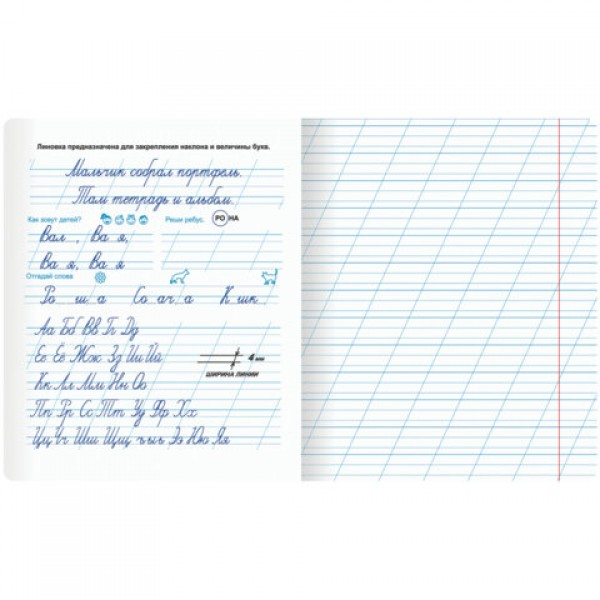 Линовка предназначена для закрепления наклона и величины букв.
Мальчик собрал портфель.
Там тетрадь и альбом.
Как зовут детей? Реши ребус. РО НА
Вал , Ва я,
Ва я, Ва я
Отгадай слова
Ро ш а Со ач а К шк
Аа Бб Вв Гг Дд
Ее Ёё Жж Зз Ии Йй
4 мм
ШИРИНА ЛИНИИ
Кк Лл Мм Нн Оо
Пп Рр Сс Тт Уу Фф Хх
Цц Чч Шш Щщ ъыь Ээ Юю Яя